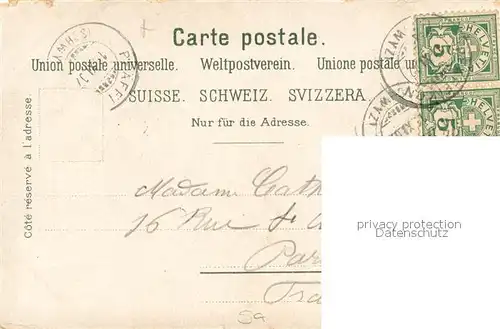 Carte postale.
Union postale universelle. Weltpostverein. Unione postale u
SUISSE. SCHWEIZ. SVIZZERA.
Nur für die Adresse.
Côté réservé à l'adresse.
5 HELVETIA
5 HELVETIA
Madame Cath
16 Rue St
Par
Fra
privacy protection
Datenschutz